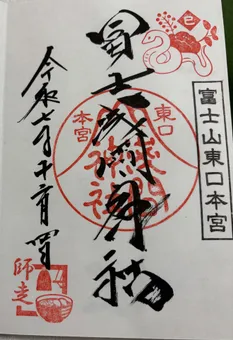 巳
富士山東口本宮
冨士浅間神社
東口
本宮
令和七年十二月四日
師走